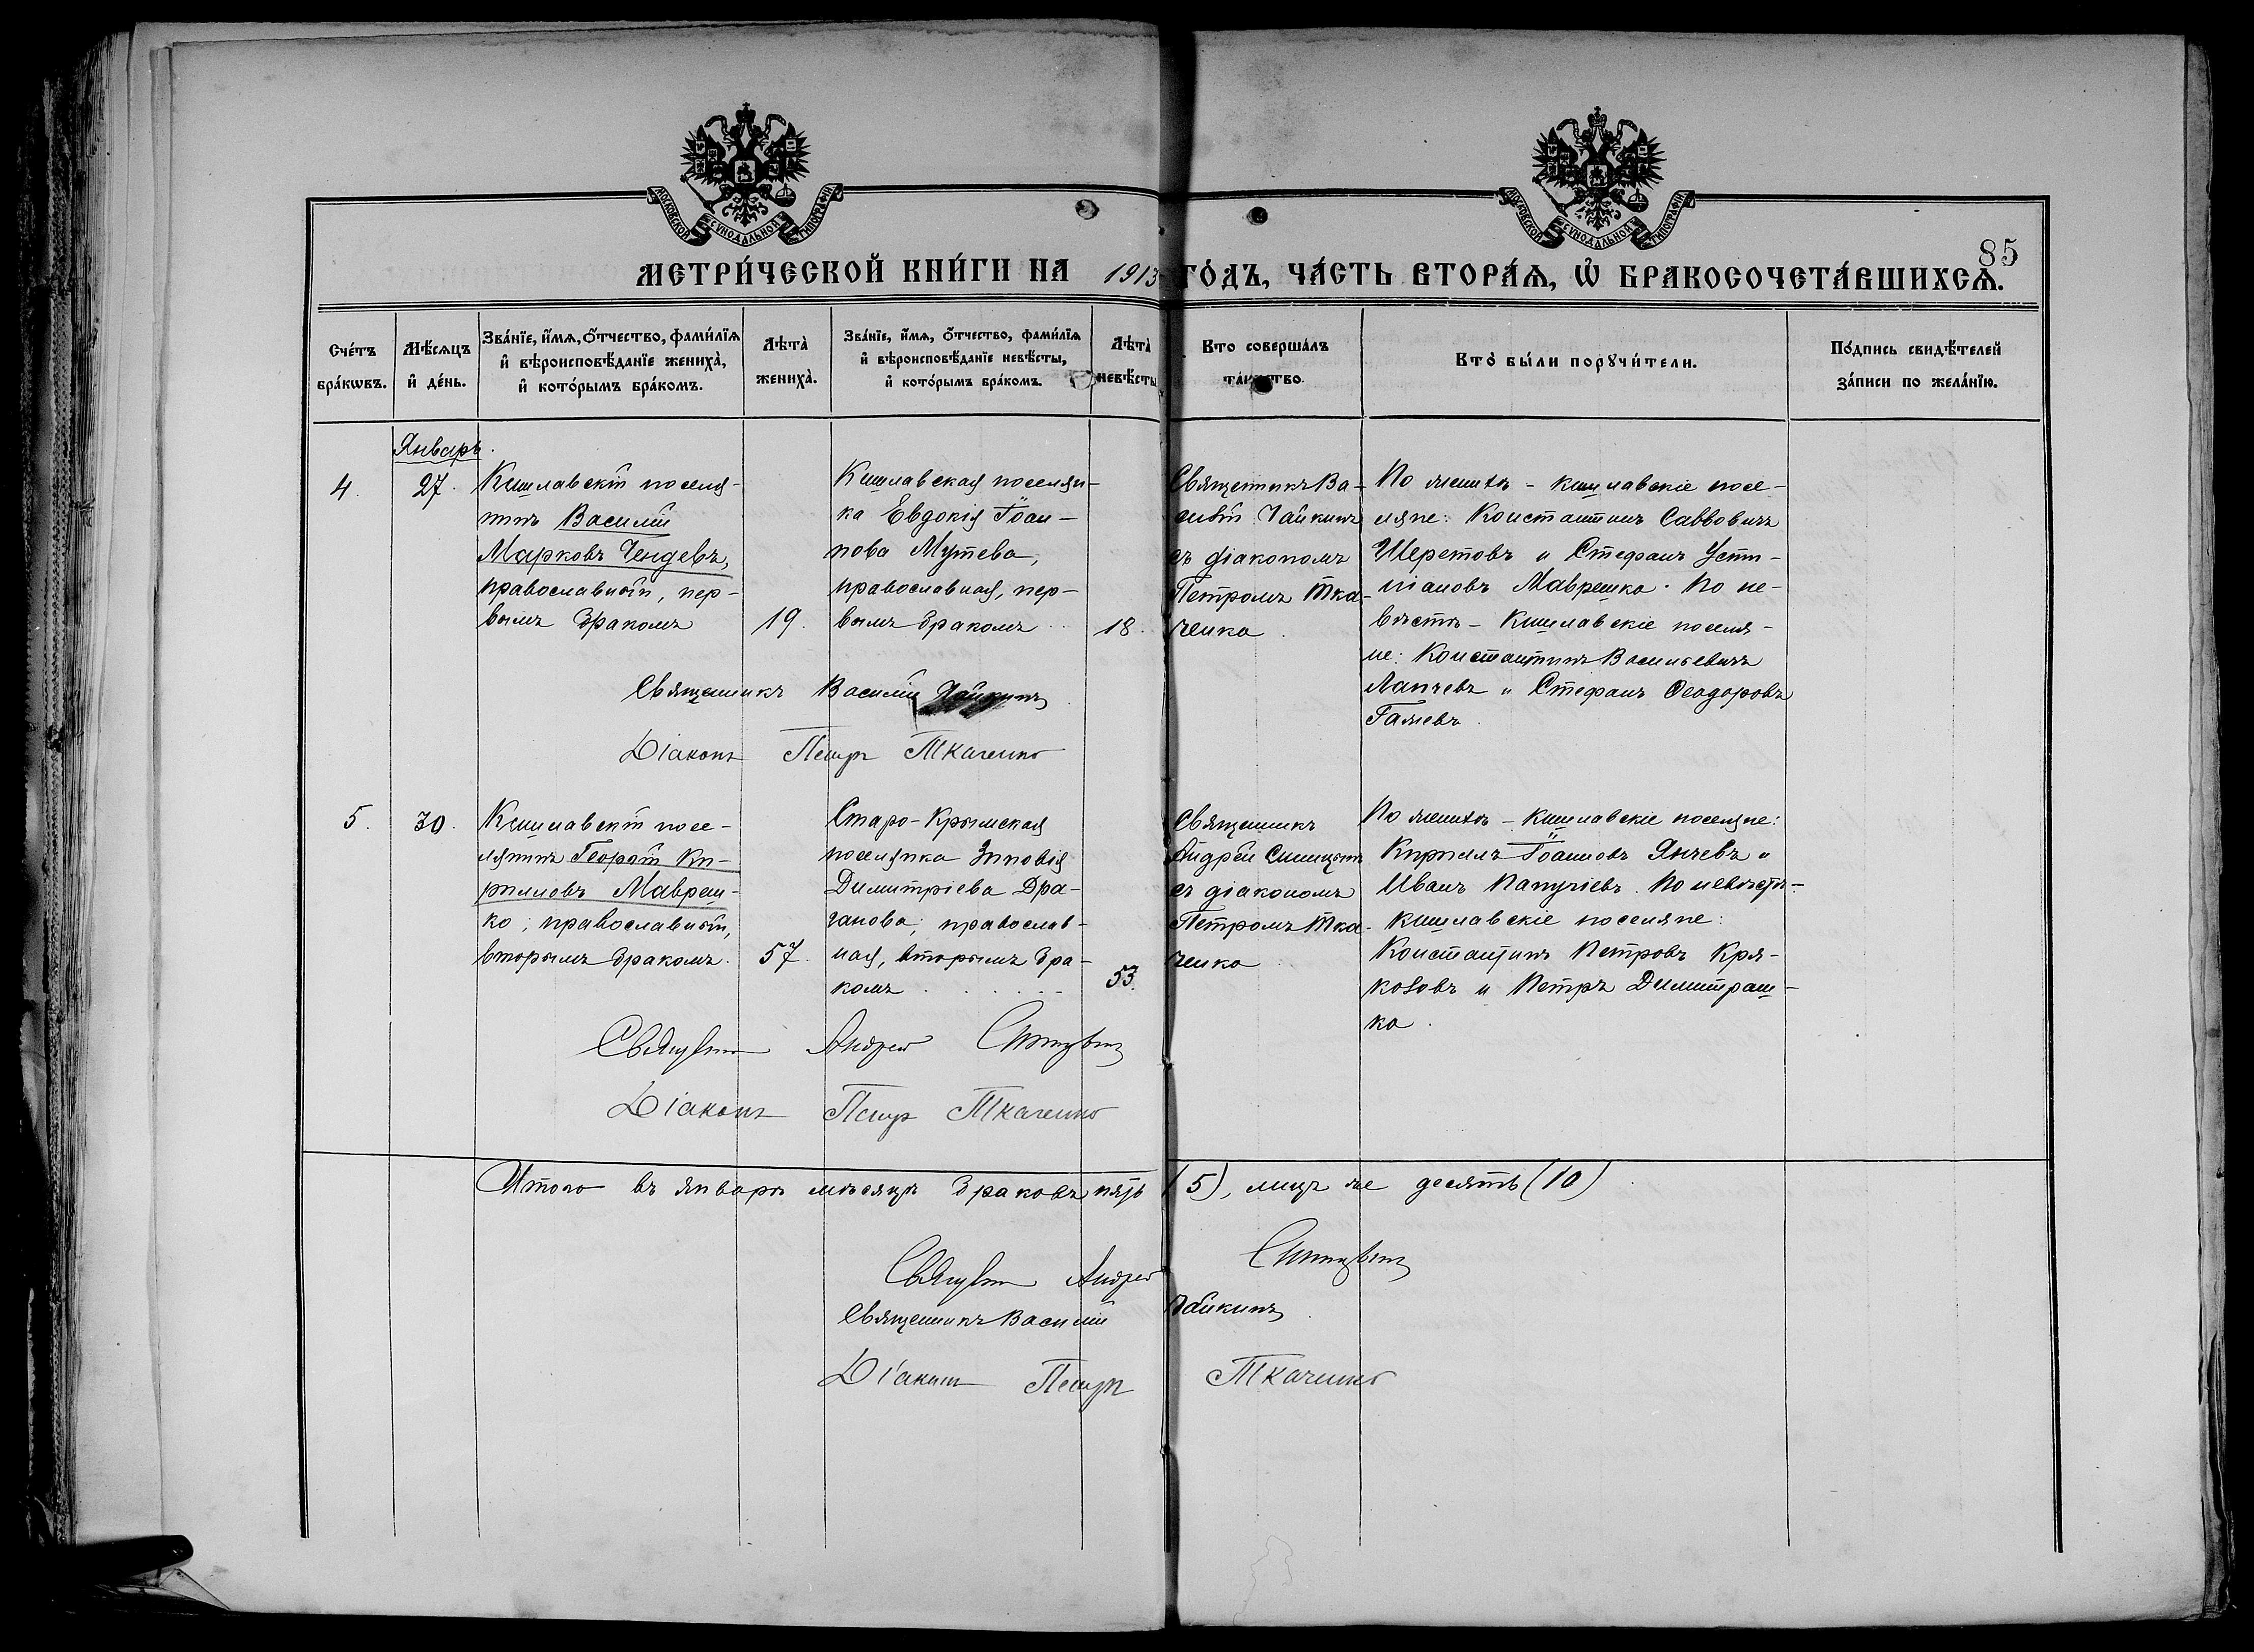 МОСКОВСКОЙ СѴНОДАЛЬНОЙ ТИПОГРАФІИ
МОСКОВСКОЙ СѴНОДАЛЬНОЙ ТИПОГРАФІИ
85
МЕТРИ́ЧЕСКОЙ КНИ́ГИ НА 1913 ГО́ДЪ, ЧА́СТЬ ВТОРА́Я, Ѡ БРАКОСОЧЕТА́ВШИХСЯ.
Сче́тъ бра́кωвъ.
Мѣ́сяцъ и де́нь.
Зва́нїе, и́мя, о́тчество, фами́лїя и вѣроисповѣ́данїе жениха̀, и кото́рымъ бра́комъ.
Лѣта̀ жениха̀.
Зва́нїе, и́мя, о́тчество, фами́лїя и вѣроисповѣ́данїе невѣ́сты, и кото́рымъ бра́комъ.
Лѣта̀ невѣ́сты
Кто соверша́лъ та́инство.
Кто̀ бы́ли порꙋчи́тели.
По́дпись свидѣ́телей за́писи по жела́нїю.
Январь.
4.
27.
Кишлавскій поселя-
нинъ Василій
Марковъ Чендевъ,
православный, пер-
вымъ бракомъ
19.
Кишлавская поселян-
ка Евдокія Іоан-
нова Мутева,
православная, пер-
вымъ бракомъ
18.
Священникъ Ва-
силій Чайкинъ
съ діакономъ
Петромъ Тка-
ченко
По женихѣ - кишлавскіе посе-
ляне: Константинъ Саввовичъ
Шеретовъ и Стефанъ Усти-
ніановъ Маврешко. По не-
вѣстѣ - Кишлавскіе поселя-
не: Константинъ Васильевичъ
Лапчевъ и Стефанъ Ѳеодоровъ
Гамевъ.
Священникъ Василій Чайкинъ
Діаконъ Петръ Ткаченко
5.
30.
Кишлавскій посе-
лянинъ Георгій Ки-
рилловъ Мавреш-
ко; православный,
вторымъ бракомъ.
57.
Старо-Крымская
поселянка Зиновія
Димитріева Дра-
ганова; православ-
ная, вторымъ бра-
комъ
53.
Священникъ
Андрей Синицынъ
съ діакономъ
Петромъ Тка-
ченко
По женихѣ - кишлавскіе поселяне:
Кириллъ Іоанновъ Янчевъ и
Иванъ Папучіевъ. По невѣстѣ-
кишлавскіе поселяне:
Константинъ Петровъ Кря-
ковъ и Петръ Димитраш-
ко.
Андрей
Діаконъ Петръ Ткаченко
Итого въ январѣ мѣсяцѣ браковъ пять (5), лицъ же десять (10)
Андрей
Священникъ Василій Чайкинъ
Діаконъ Петръ Ткаченко